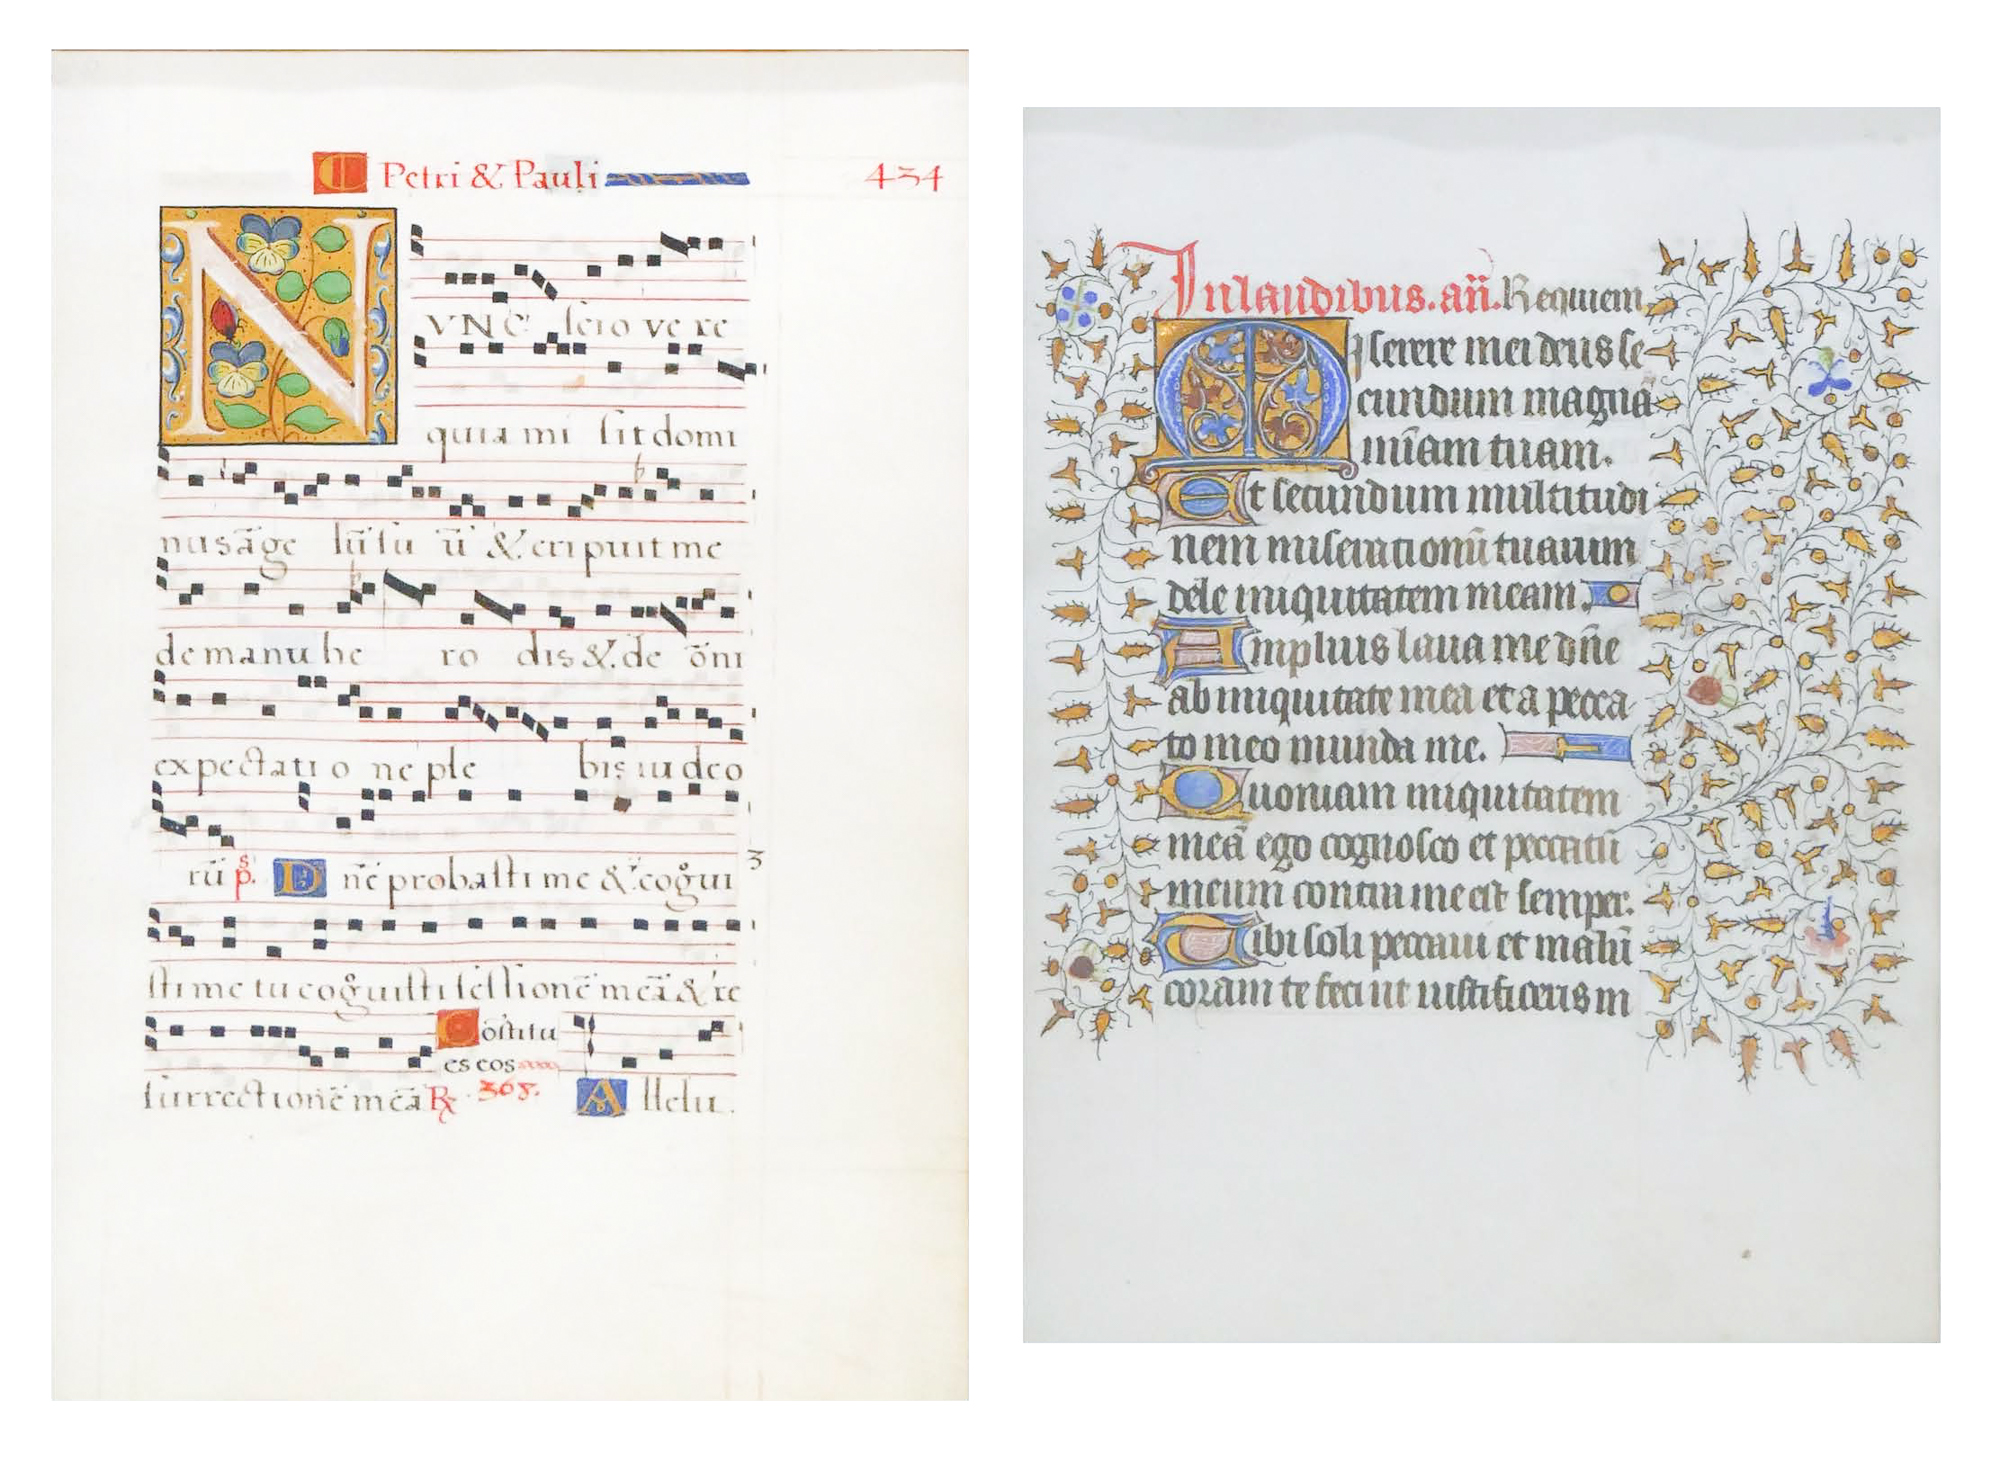 C Petri & Pauli 434
NVNC scio vere
quia mi sit domi
nus āge lū su ū & eripuit me
de manu he ro dis & de ōni
expectati o ne ple bis iudeo
rū ps. Dñe probasti me & cogui
sti me tu cog̊uisti sessionē meā & re
Cōstitu
es eos
surrectionē meā R̷ . 368. Allelu.
In laudibus. añ. Requiem
Miserere mei deus se
cundum magnā
miam tuam.
Et secundum multitudi
nem miserationū tuarum
dele iniquitatem meam.
Amplius laua me dñe
ab iniquitate mea et a pecca
to meo munda me.
Quoniam iniquitatem
meā ego cognosco et peccatū
meum contra me est semper.
Tibi soli peccaui et malū
coram te feci ut iustificeris in